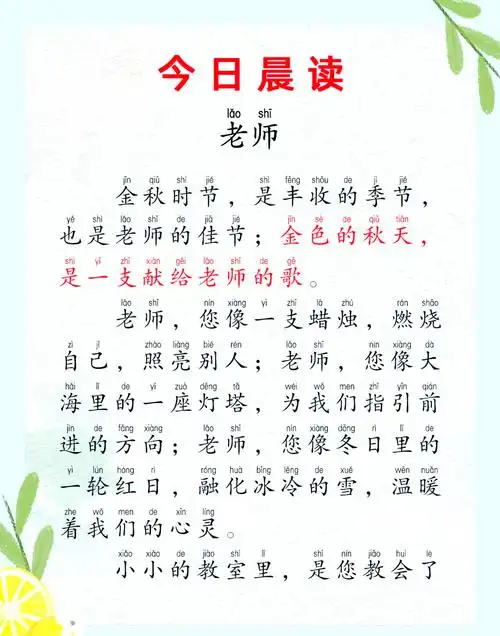 今日晨读
lǎo shī
老师
jīn qiū shí jié shì fēng shōu de jì jié
金秋时节，是丰收的季节，
yě shì lǎo shī de jiā jié jīn sè de qiū tiān
也是老师的佳节；金色的秋天，
shì yī zhī xiàn gěi lǎo shī de gē
是一支献给老师的歌。
lǎo shī nín xiàng yì zhī là zhú rán shāo
老师，您像一支蜡烛，燃烧
zì jǐ zhào liàng bié rén lǎo shī nín xiàng dà
自己，照亮别人；老师，您像大
hǎi lǐ de yí zuò dēng tǎ wèi wǒ men zhǐ yǐn qián
海里的一座灯塔，为我们指引前
jìn de fāng xiàng lǎo shī nín xiàng dōng rì lǐ de
进的方向；老师，您像冬日里的
yì lún hóng rì róng huà bīng lěng de xuě wēn nuǎn
一轮红日，融化冰冷的雪，温暖
zhe wǒ men de xīn líng
着我们的心灵。
xiǎo xiǎo de jiào shì lǐ shì nín jiāo huì le
小小的教室里，是您教会了